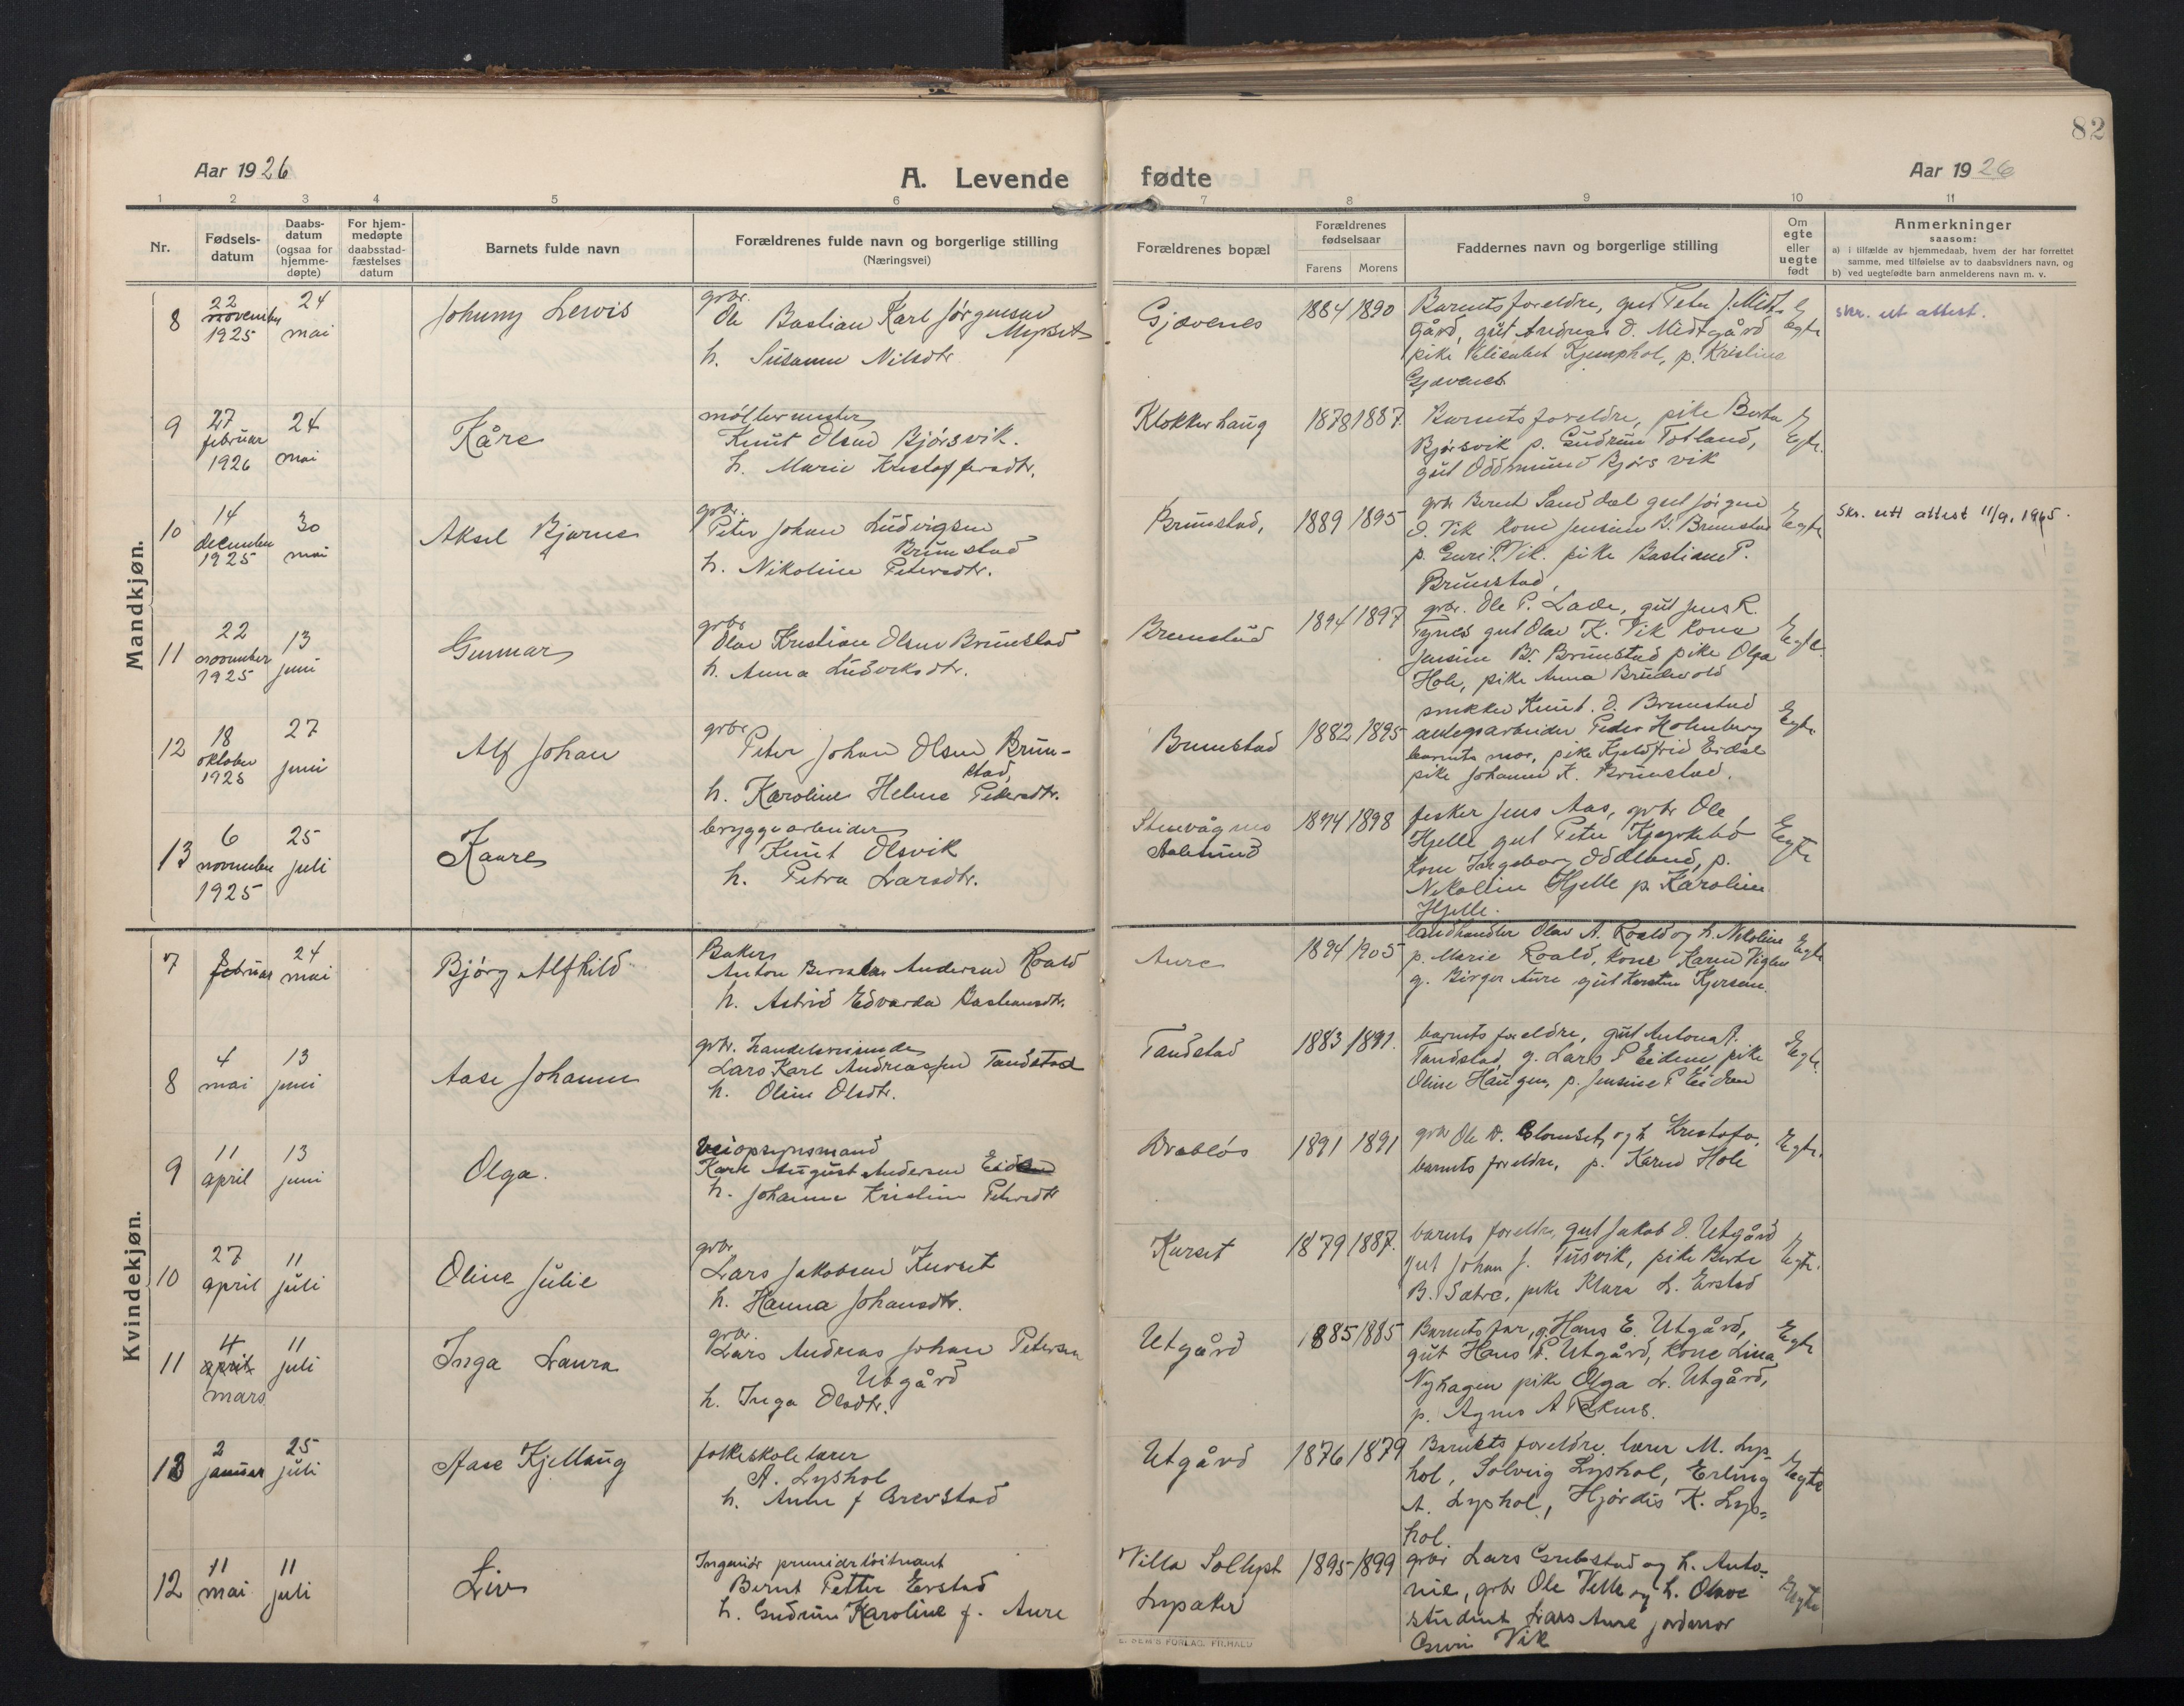 82
Aar 1926
A. Levende fødte
Aar 1926
1 2 3 4 5 6 7 8 9 10 11
Nr.
Fødsels-
datum
Daabs-
datum
(ogsaa for
hjemme-
døpte)
For hjem-
medøpte
daabsstad-
fæstelses
datum
Barnets fulde navn
Forældrenes fulde navn og borgerlige stilling
(Næringsvei)
Forældrenes bopæl
Forældrenes
fødselsaar
Farens Morens
Faddernes navn og borgerlige stilling
Om
egte
eller
uegte
født
Anmerkninger
saasom:
a) i tilfælde av hjemmedaab, hvem der har forrettet
samme, med tilføielse av to daabsvidners navn, og
b) ved uegtefødte barn anmelderens navn m. v.
Mandkjøn.
8
22
november
1925
24
mai
Johnny Lewis
grbr.
Ole Bastian Karl Jørgensen
Myrset
h. Susanne Nilsdtr.
Gjævenes
1884 1890
Barnets foreldre, gut Peter J. Midt-
gård, gut Andreas O. Midtgård
pike Elisabet Kjemphol, p. Kristine
Gjævenes
Egte
skr. ut attest.
9
27
februar
1926
24
mai
Kåre
møllermester
Knut Olsen Bjørsvik.
h. Marie Kristoffersdtr.
Klokkerhaug
1878 1887.
Barnets foreldre, pike Berta
Bjørsvik p. Gudrun Totland,
gut Oddmund Bjørsvik
Egte.
10
14
december
1925
30
mai
Aksel Bjarne
grbr.
Peter Johan Ludvigsen
Brunstad
h. Nikoline Petersdtr.
Brunstad,
1889 1895
grbr Bernt Sanddal gut Jørgen
O. Vik kone Jensine B. Brunstad
p. Guri P. Vik. pike Bastiane P.
Brunstad,
Egte
Skr. utt attest 11/9, 1965.
11
22
november
1925
13
juni
Gunnar
grbr
Olav Kristian Olsen Brunstad
h. Anna Ludviksdtr.
Brunstad
1894 1897
grbr. Ole P. Lade, gut Jens R.
Tynes gut Olav K. Vik kone
Jensine B. Brunstad pike Olga
Hole, pike Anna Brudevold
Egte.
12
18
oktober
1925
27
juni
Alf Johan
grbr
Peter Johan Olsen Brun-
stad,
h. Karoline Helene Petersdtr.
Brunstad
1882 1895
snekker Knut O. Brunstad
anlegsarbeider Peder Holmberg
barnets mor, pike Kjeldfrid Eidal
pike Johanne K. Brunstad.
Egte.
13
6
november
1925
25
juli
Kaare
bryggearbeider
Knut Olsvik
h. Petra Larsdtr.
Stenvågnes
Aalesund
1894 1898
fisker Jens Aas, grbr Ole
Hjelle gut Peter
kone Ingeborg Oddland, p.
Nikoline Hjelle p. Karoline
Hjelle.
Egte
Kvindekjøn.
7
8
februar
24
mai
Bjørg Alfhild
Baker
Anton Andersen Roald
h. Astrid Edvarda Bastiansdtr.
Aure
1894 1905
landhandler Olav A. Roald og h. Nikoline
p. Marie Roald, kone Karen Vigler
g. Birger Aure gut Karsten Kjersem.
Egte
8
4
mai
13
juni
Aase Johanne
grbr. handelsreisende
Lars Karl Andreassen Tandstad
h. Oline Olsdtr.
Tandstad
1883 1891.
barnets foreldre, gut Antona A.
Tandstad, g. Lars P Eidem, pike
Oline Haugen, p. Jensine P Eidem
Egte.
9
11
april
13
juni
Olga.
Veiopsynsmand
Karl August Andersen
h. Johanne Kristine Petersdtr
Drabløs
1891 1891
grbr Ole D. Blomset og h Kristofa.
barnets foreldre, p. Karen Hole
Egte.
10
27
april
11
juli
Oline Julie
grbr
Lars Jakobsen Kurset
h. Hanna Johansdtr.
Kurset
1879 1887.
barnets foreldre, gut Jakob O. Utgård
gut Johan J. Tusvik, pike Berte
B. Sætre, pike Klara L. Erstad
Egte.
11
4
april
mars
11
juli
Inga Laura
grbr.
Lars Andreas Johan Petersen
Utgård
h. Inga Olsdtr.
Utgård
1885 1885
Barnets far, g. Hans E. Utgård,
gut Hans P. Utgård, kone Lina
Nyhagen pike Olga L. Utgård,
p. Agnes A Reknes.
Egte
13
2
januar
25
juli
Aase Kjellaug
folkeskolelærer
A. Lyshol
h. Anne f Grevstad
Utgård
1876 1879
Barnets foreldre, lærer M. Lys-
hol, Solveig Lyshol, Erling
A. Lyshol, Hjørdis K. Lys-
hol.
Egte
12
11
mai
11
juli
Liv
Ingeniør premierløitnant
Bernt Petter Erstad
h. Gudrun Karoline f. Aure
Villa Sollyst
Lysaker
1895 1899
grbr Lars Grebstad og h. Anto-
nie, grbr Ole Velle og h. Olave
student Lars Aure jordmor
Guri Vik
Egte